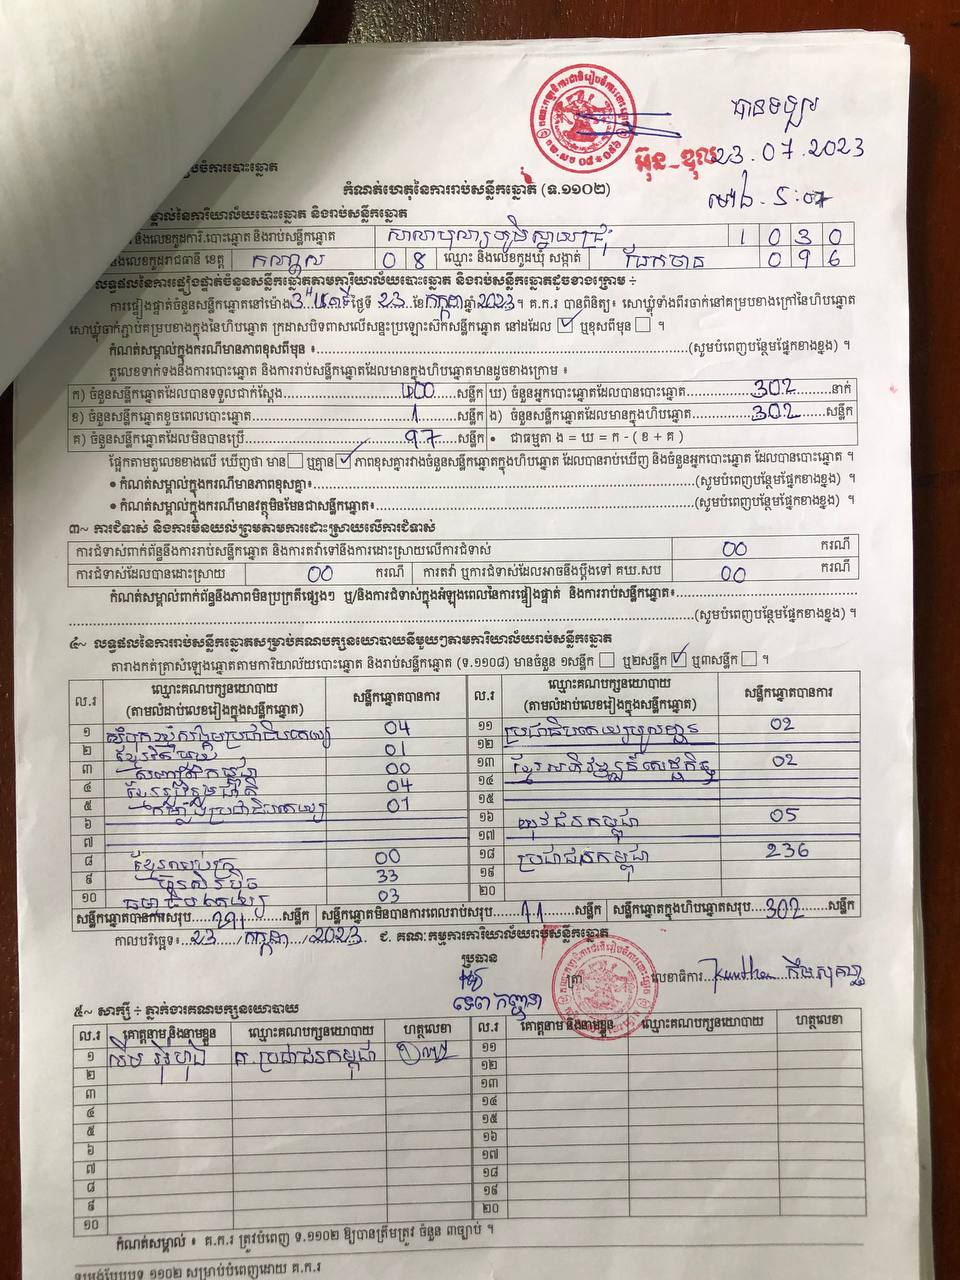 បានទទួល
23.07.2023
ម៉ោង. 5:07
អ៊ុន-ឌុល
បចំការបោះឆ្នោត
កំណត់ហេតុនៃការរាប់សន្លឹកឆ្នោត (ទ.១១០២)
គាល់នៃការិយាល័យបោះឆ្នោត និងរាប់សន្លឹកឆ្នោត
និងលេខកូដការិ.បោះឆ្នោត និងរាប់សន្លឹកឆ្នោត សាលាបុណ្យភូមិស្វាយជ្រុំ 1030
ងលេខកូដរាជធានី ខេត្ត កណ្តាល 08 ឈ្មោះ និងលេខកូដឃុំ សង្កាត់ ព្រែកចាន 096
លទ្ធផលនៃការផ្ទៀងផ្ទាត់ចំនួនសន្លឹកឆ្នោតតាមការិយាល័យបោះឆ្នោត និងរាប់សន្លឹកឆ្នោតដូចខាងក្រោម ÷
ការផ្ទៀងផ្ទាត់ចំនួនសន្លឹកឆ្នោតនៅម៉ោង ថ្ងៃទី 23 ខែ កក្កដា ឆ្នាំ 2023 ។ គ.ក.រ បានពិនិត្យ ៖ សោឃ្លុំទាំងពីរចាក់នៅគម្របខាងក្រៅនៃហិបឆ្នោត
សោឃ្លុំចាក់ភ្ជាប់គម្របខាងក្នុងនៃហិបឆ្នោត ក្រដាសបិទពាសលើសន្ទះប្រឡោះស៊កសន្លឹកឆ្នោត នៅដដែល ☑ ឬខុសពីមុន ☐ ។
កំណត់សម្គាល់ក្នុងករណីមានភាពខុសពីមុន ៖ (សូមបំពេញបន្ថែមផ្នែកខាងខ្នង) ។
តួលេខទាក់ទងនឹងការបោះឆ្នោត និងការរាប់សន្លឹកឆ្នោតដែលមានក្នុងហិបឆ្នោតមានដូចខាងក្រោម ៖
ក) ចំនួនសន្លឹកឆ្នោតដែលបានទទួលជាក់ស្តែង 400 សន្លឹក ឃ) ចំនួនអ្នកបោះឆ្នោតដែលបានបោះឆ្នោត 302 នាក់
ខ) ចំនួនសន្លឹកឆ្នោតខូចពេលបោះឆ្នោត 1 សន្លឹក ង) ចំនួនសន្លឹកឆ្នោតដែលមានក្នុងហិបឆ្នោត 302 សន្លឹក
គ) ចំនួនសន្លឹកឆ្នោតដែលមិនបានប្រើ 97 សន្លឹក • ជាធម្មតា ង = ឃ = ក - ( ខ + គ )
ផ្អែកតាមតួលេខខាងលើ ឃើញថា មាន ☐ ឬគ្មាន ☑ ភាពខុសគ្នារវាងចំនួនសន្លឹកឆ្នោតក្នុងហិបឆ្នោត ដែលបានរាប់ឃើញ និងចំនួនអ្នកបោះឆ្នោត ដែលបានបោះឆ្នោត ។
• កំណត់សម្គាល់ក្នុងករណីមានភាពខុសគ្នា៖ (សូមបំពេញបន្ថែមផ្នែកខាងខ្នង) ។
• កំណត់សម្គាល់ក្នុងករណីមានវត្ថុមិនមែនជាសន្លឹកឆ្នោត៖ (សូមបំពេញបន្ថែមផ្នែកខាងខ្នង) ។
៣~ ការជំទាស់ និងការមិនយល់ព្រមតាមការដោះស្រាយលើការជំទាស់
ការជំទាស់ពាក់ព័ន្ធនឹងការរាប់សន្លឹកឆ្នោត និងការតវ៉ាទៅនឹងការដោះស្រាយលើការជំទាស់ 00 ករណី
ការជំទាស់ដែលបានដោះស្រាយ 00 ករណី ការតវ៉ា ឬការជំទាស់ដែលអាចនឹងប្តឹងទៅ គឃ.សប 00 ករណី
កំណត់សម្គាល់ពាក់ព័ន្ធនឹងភាពមិនប្រក្រតីផ្សេងៗ ឬ/និងការជំទាស់ក្នុងអំឡុងពេលនៃការផ្ទៀងផ្ទាត់ និងការរាប់សន្លឹកឆ្នោត៖
(សូមបំពេញបន្ថែមផ្នែកខាងខ្នង) ។
៤~ លទ្ធផលនៃការរាប់សន្លឹកឆ្នោតសម្រាប់គណបក្សនយោបាយនីមួយៗតាមការិយាល័យរាប់សន្លឹកឆ្នោត
តារាងកត់ត្រាសំឡេងឆ្នោតតាមការិយាល័យបោះឆ្នោត និងរាប់សន្លឹកឆ្នោត (ទ.១១០៨) មានចំនួន ១សន្លឹក ☐ ឬ២សន្លឹក ☑ ឬ៣សន្លឹក ☐ ។
ល.រ ឈ្មោះគណបក្សនយោបាយ (តាមលំដាប់លេខរៀងក្នុងសន្លឹកឆ្នោត) សន្លឹកឆ្នោតបានការ ល.រ ឈ្មោះគណបក្សនយោបាយ (តាមលំដាប់លេខរៀងក្នុងសន្លឹកឆ្នោត) សន្លឹកឆ្នោតបានការ
១ សំបុកឃ្មុំសង្គមប្រជាធិបតេយ្យ 04 ១១ ប្រជាធិបតេយ្យមូលដ្ឋាន 02
២ ខ្មែរ 01 ១២
៣ កម្ពុជា 00 ១៣ ខ្មែរអភិវឌ្ឍន៍សេដ្ឋកិច្ច 02
៤ ខ្មែររួបរួមជាតិ 04 ១៤
៥ កម្លាំងប្រជាធិបតេយ្យ 01 ១៥
៦ ១៦ យុវជនកម្ពុជា 05
៧ ១៧
៨ ខ្មែរ 00 ១៨ ប្រជាជនកម្ពុជា 236
៩ ហ៊្វុនស៊ិនប៉ិច 33 ១៩
១០ ធម្មាធិបតេយ្យ 03 ២០
សន្លឹកឆ្នោតបានការសរុប 291 សន្លឹក សន្លឹកឆ្នោតមិនបានការពេលរាប់សរុប 11 សន្លឹក សន្លឹកឆ្នោតក្នុងហិបឆ្នោតសរុប 302 សន្លឹក
កាលបរិច្ឆេទ៖ 23 / កក្កដា / 2023 ជ. គណៈកម្មការការិយាល័យរាប់សន្លឹកឆ្នោត
ប្រធាន ត្រា លេខាធិការ
ទេព កញ្ញនា
៥~ សាក្សី ÷ ភ្នាក់ងារគណបក្សនយោបាយ
ល.រ គោត្តនាម និងនាមខ្លួន ឈ្មោះគណបក្សនយោបាយ ហត្ថលេខា ល.រ គោត្តនាម និងនាមខ្លួន ឈ្មោះគណបក្សនយោបាយ ហត្ថលេខា
១ គ.ប្រជាជនកម្ពុជា ១១
២ ១២
៣ ១៣
៤ ១៤
៥ ១៥
៦ ១៦
៧ ១៧
៨ ១៨
៩ ១៩
១០ ២០
កំណត់សម្គាល់ ៖ គ.ក.រ ត្រូវបំពេញ ទ.១១០២ ឱ្យបានត្រឹមត្រូវ ចំនួន ៣ច្បាប់ ។
ទម្រង់បែបបទ ១១០២ សម្រាប់បំពេញដោយ គ.ក.រ